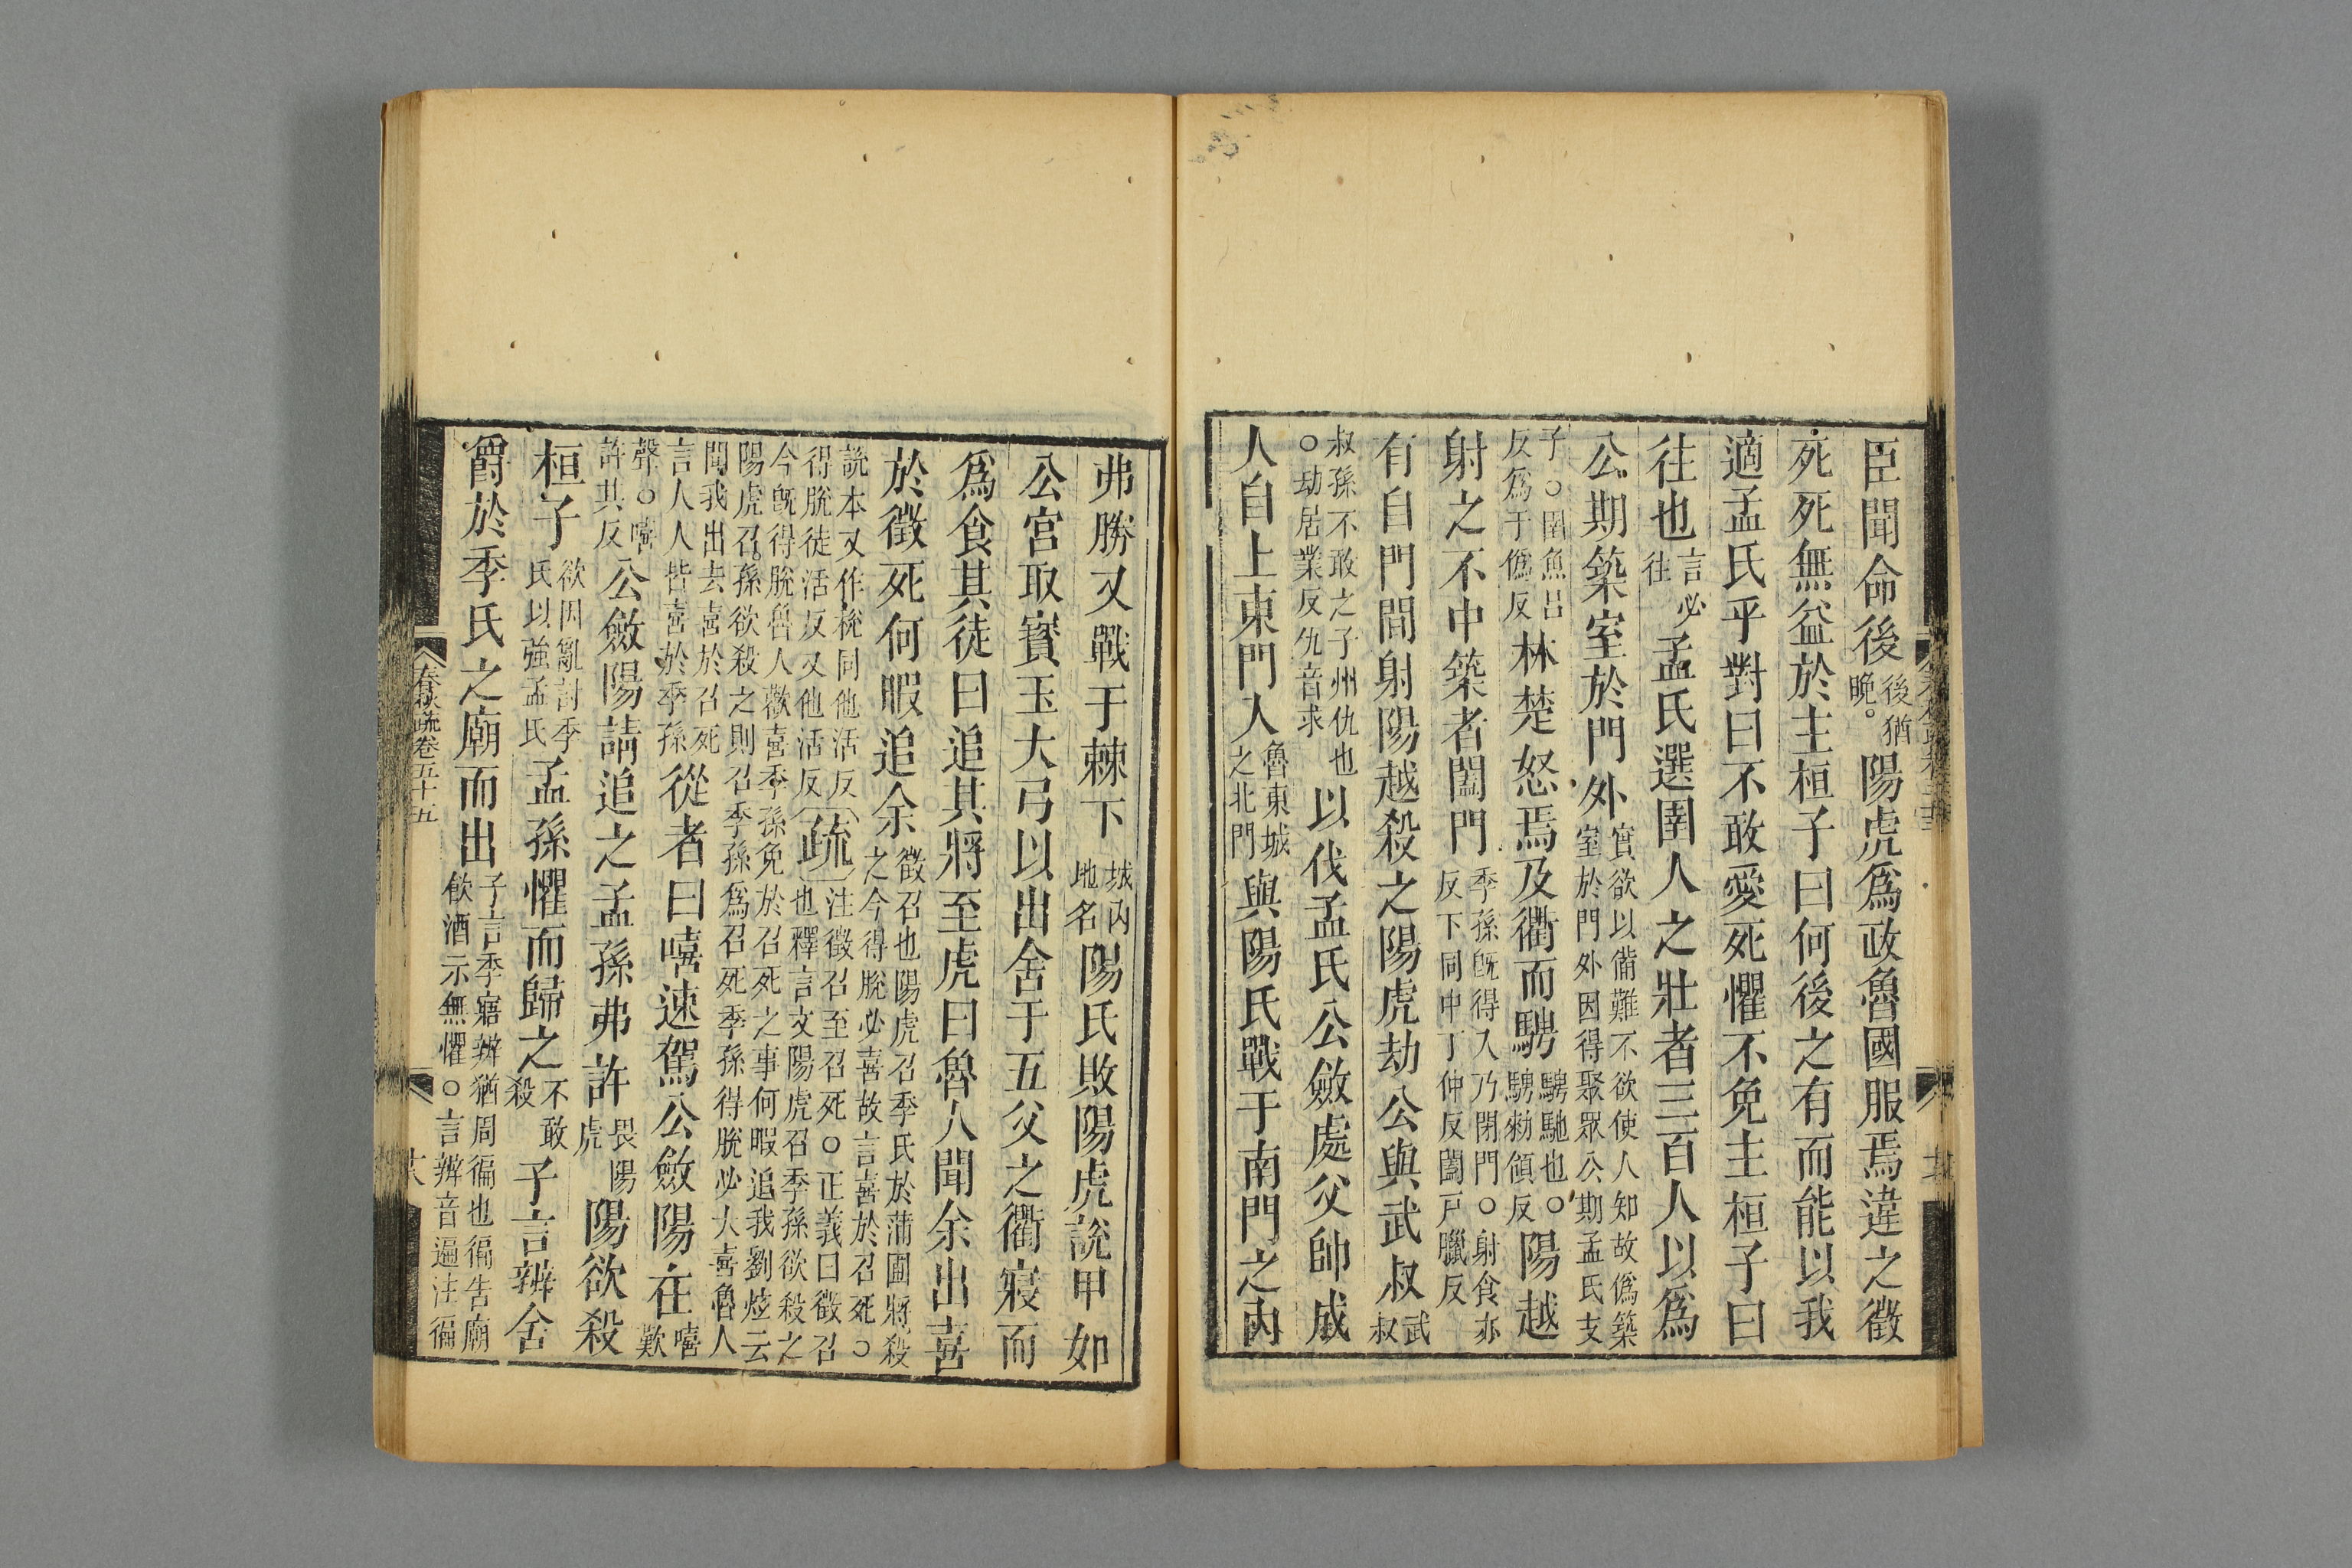 臣聞命後後猶晚。陽虎爲政魯國服焉違之徵
死死無益於主桓子曰何後之有而能以我
適孟氏乎對曰不敢愛死懼不免主桓子曰
往也言必往孟氏選圉人之壯者三百人以爲
公期築室於門外實欲以備難不欲使人知故僞築室於門外因得聚眾公期孟氏支
子○圉魚呂反爲于僞反林楚怒焉及衢而騁騁馳也○騁勑領反陽越
射之不中築者闔門季孫既得入乃閉門○射食亦反下同中丁仲反闔戸臘反
有自門間射陽越殺之陽虎劫公與武叔武叔
叔孫不敢之子州仇也○劫居業反仇音求以伐孟氏公斂處父帥成
人自上東門入魯東城之北門與陽氏戰于南門之內
弗勝又戰于棘下城內地名陽氏敗陽虎說甲如
公宮取寳玉大弓以出舍于五父之衢寢而
爲食其徒曰追其將至虎曰魯人聞余出喜
於徵死何暇追余徵召也陽虎召季氏於蒲圃將殺之今得脫必喜故言喜於召死○
說本又作梲同他活反得脫徒活反又他活反疏注徵召至召死○正義曰徵召也釋言文陽虎召季孫欲殺之
今既得脫魯人歡喜季孫免於召死之事何暇追我劉炫云陽虎召季孫欲殺之則召季孫爲召死季孫得脫必大喜魯人
聞我出去喜於召死言人人皆喜於季孫從者曰嘻速駕公斂陽在嘻歎
聲○嘻許其反公斂陽請追之孟孫弗許畏陽虎陽欲殺
桓子欲因亂討季氏以強孟氏孟孫懼而歸之不敢殺子言辨舍
爵於季氏之廟而出子言季寤辨猶周徧也徧告廟飲酒示無懼○言辨音遍注徧
春秋疏卷五十五